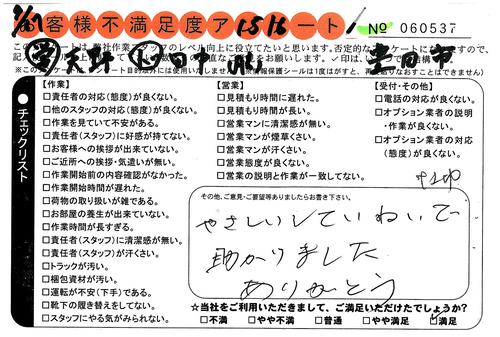 お客様不満足度アンケート
No 060537
【作業】
□責任者の対応(態度)が良くない。
□他のスタッフの対応(態度)が良くない。
□作業を見ていて不安がある。
□責任者(スタッフ)に好感が持てない。
□お客様への挨拶が出来ていない。
□ご近所への挨拶・気遣いが無い。
□作業開始前の内容確認がなかった。
□作業開始時間が遅れた。
□荷物の取り扱いが雑である。
□お部屋の養生が出来ていない。
□作業時間が長すぎる。
□責任者(スタッフ)に清潔感が無い。
□責任者(スタッフ)が汗くさい。
□トラックが汚い。
□梱包資材が汚い。
□運転が不安(下手)である。
□靴下の履き替えをしてない。
□スタッフにやる気がみられない。
【営業】
□見積もり時間に遅れた。
□見積もり時間が長い。
□営業マンに清潔感が無い。
□営業マンが煙草くさい。
□営業マンが汗くさい。
□営業態度が良くない。
□営業の説明と作業が一致してない。
【受付・その他】
□電話の対応が良くない。
□オプション業者の説明
・作業が良くない。
□オプション業者の対応
(態度)が良くない。
チェックリスト
その他、ご意見・ご要望等ありましたらお書き下さい。
やさしいしていねいで
助かりました
ありがとう
☆当社をご利用いただきまして、ご満足いただけたでしょうか?
□不満 □やや不満 □普通 □やや満足 ☑満足